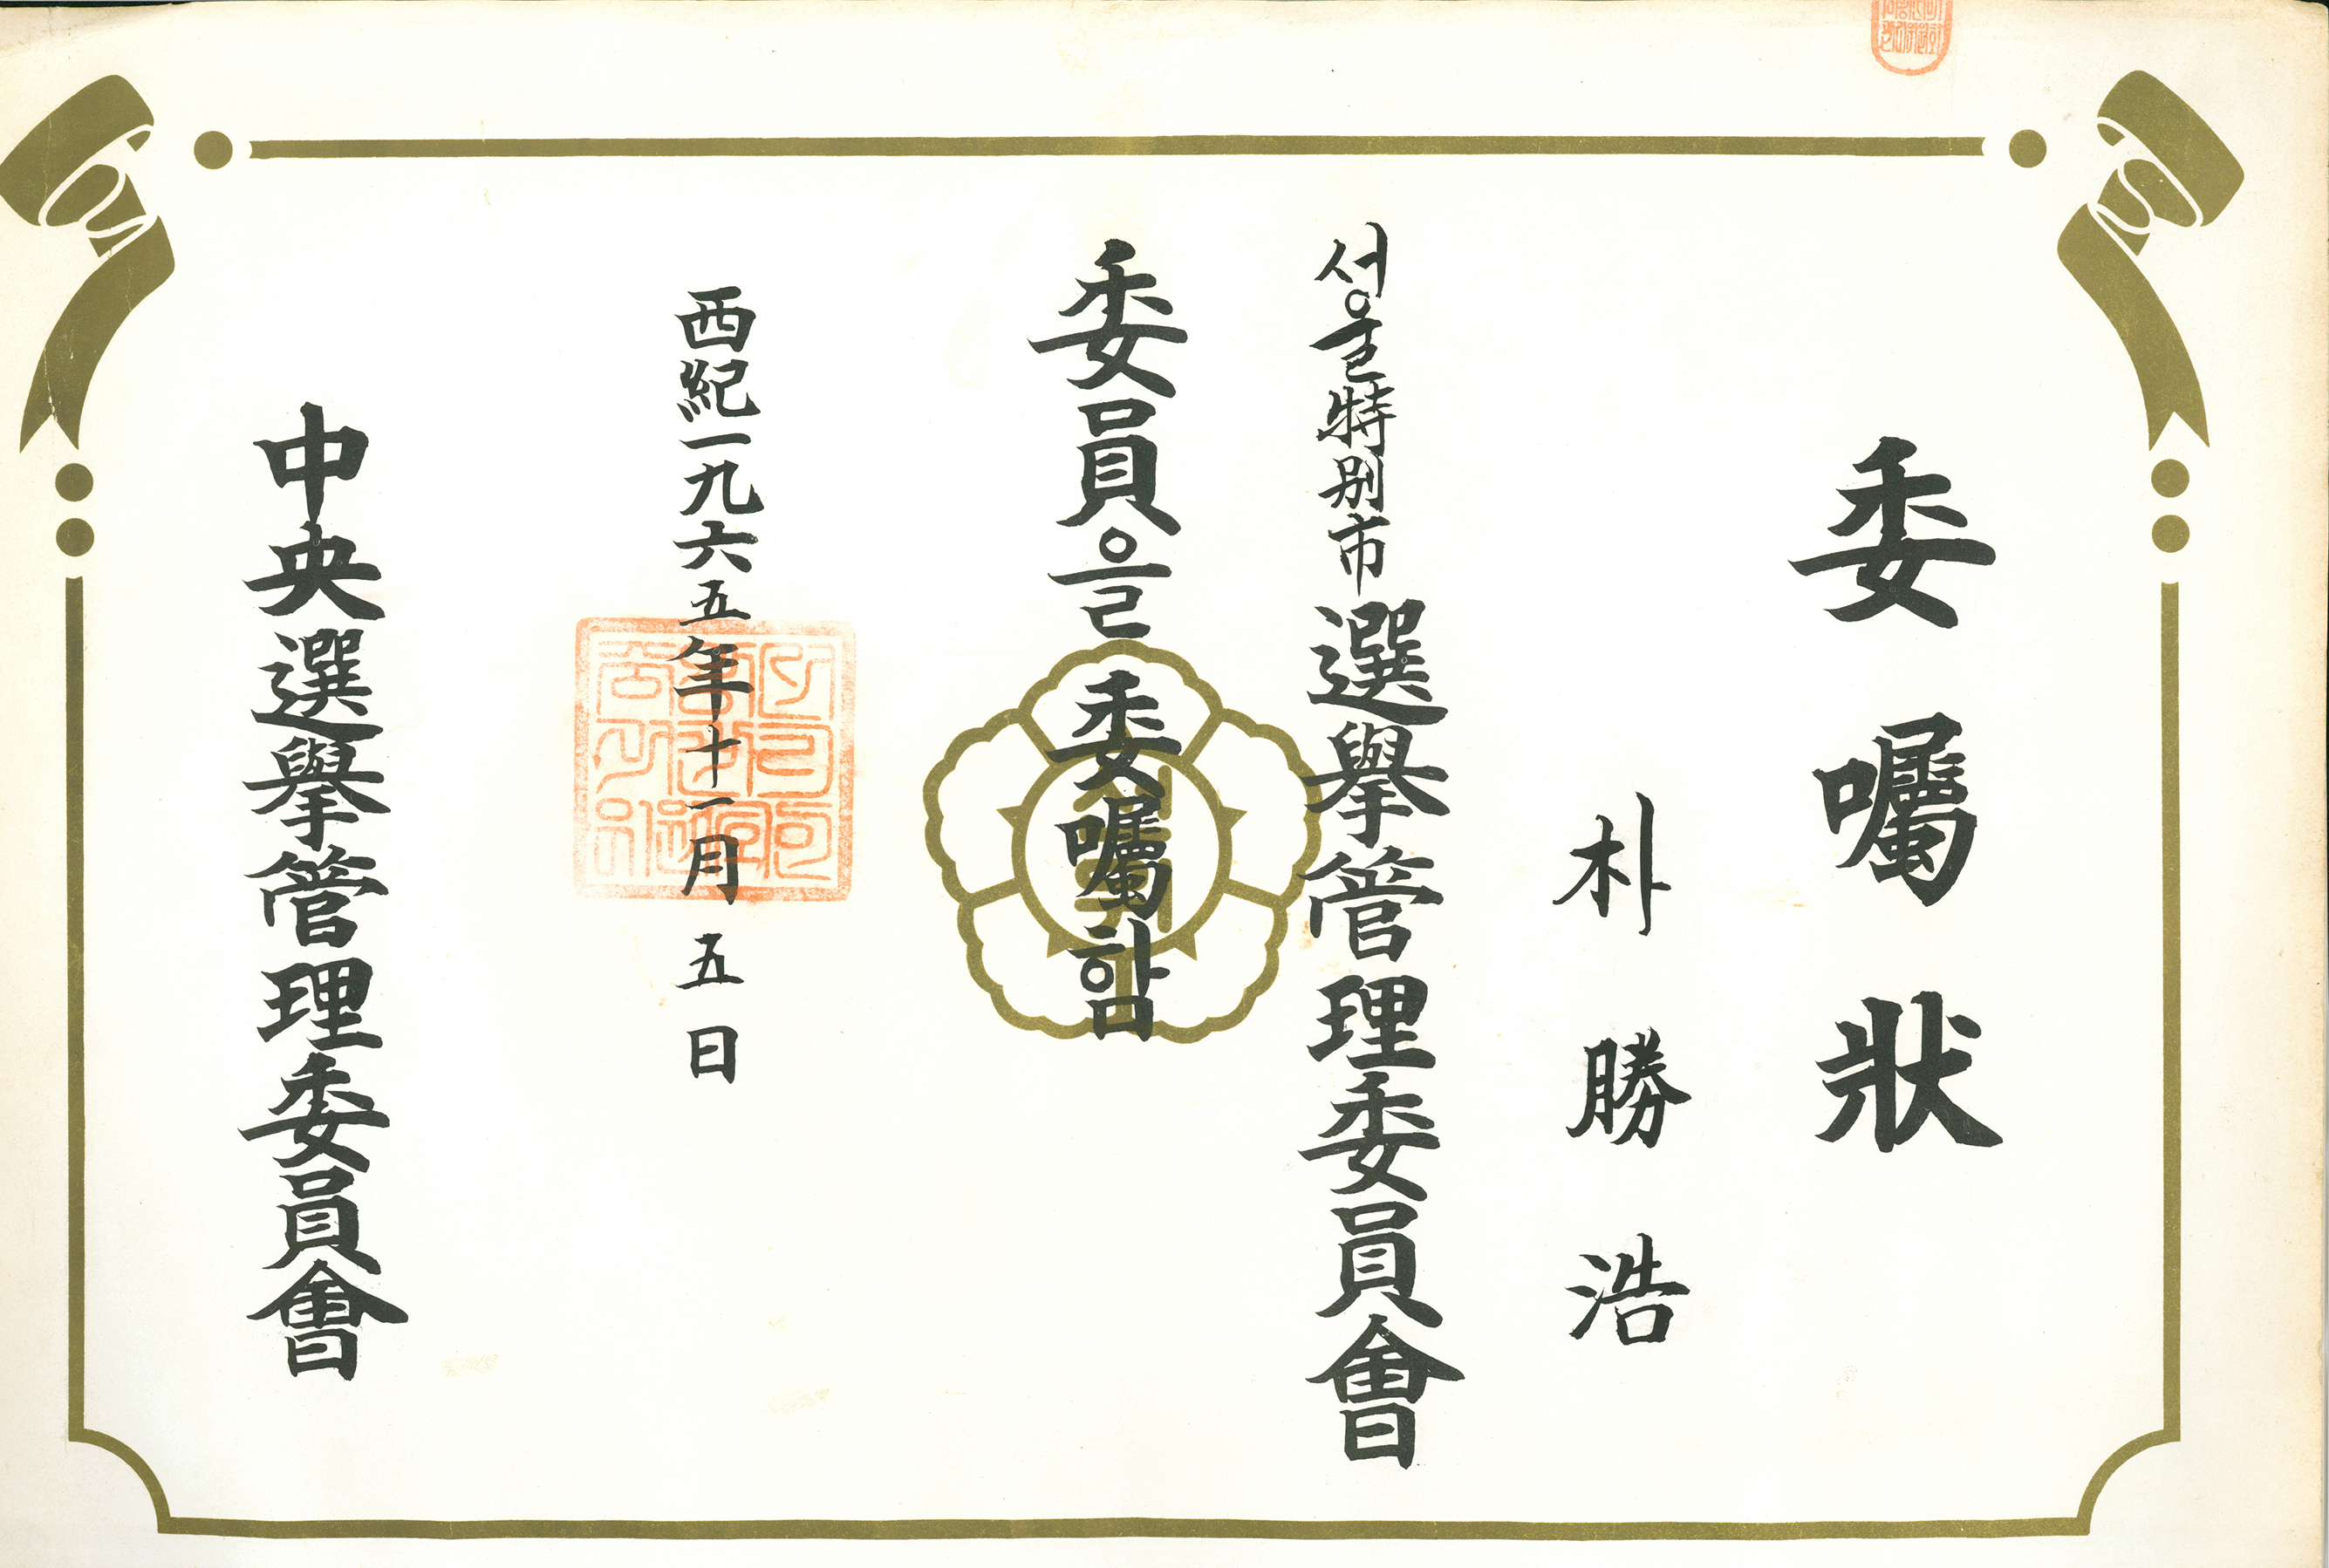 委囑狀
朴勝浩
서울特別市選擧管理委員會
委員을 委囑함
西紀一九六五年十一月五日
中央選擧管理委員會